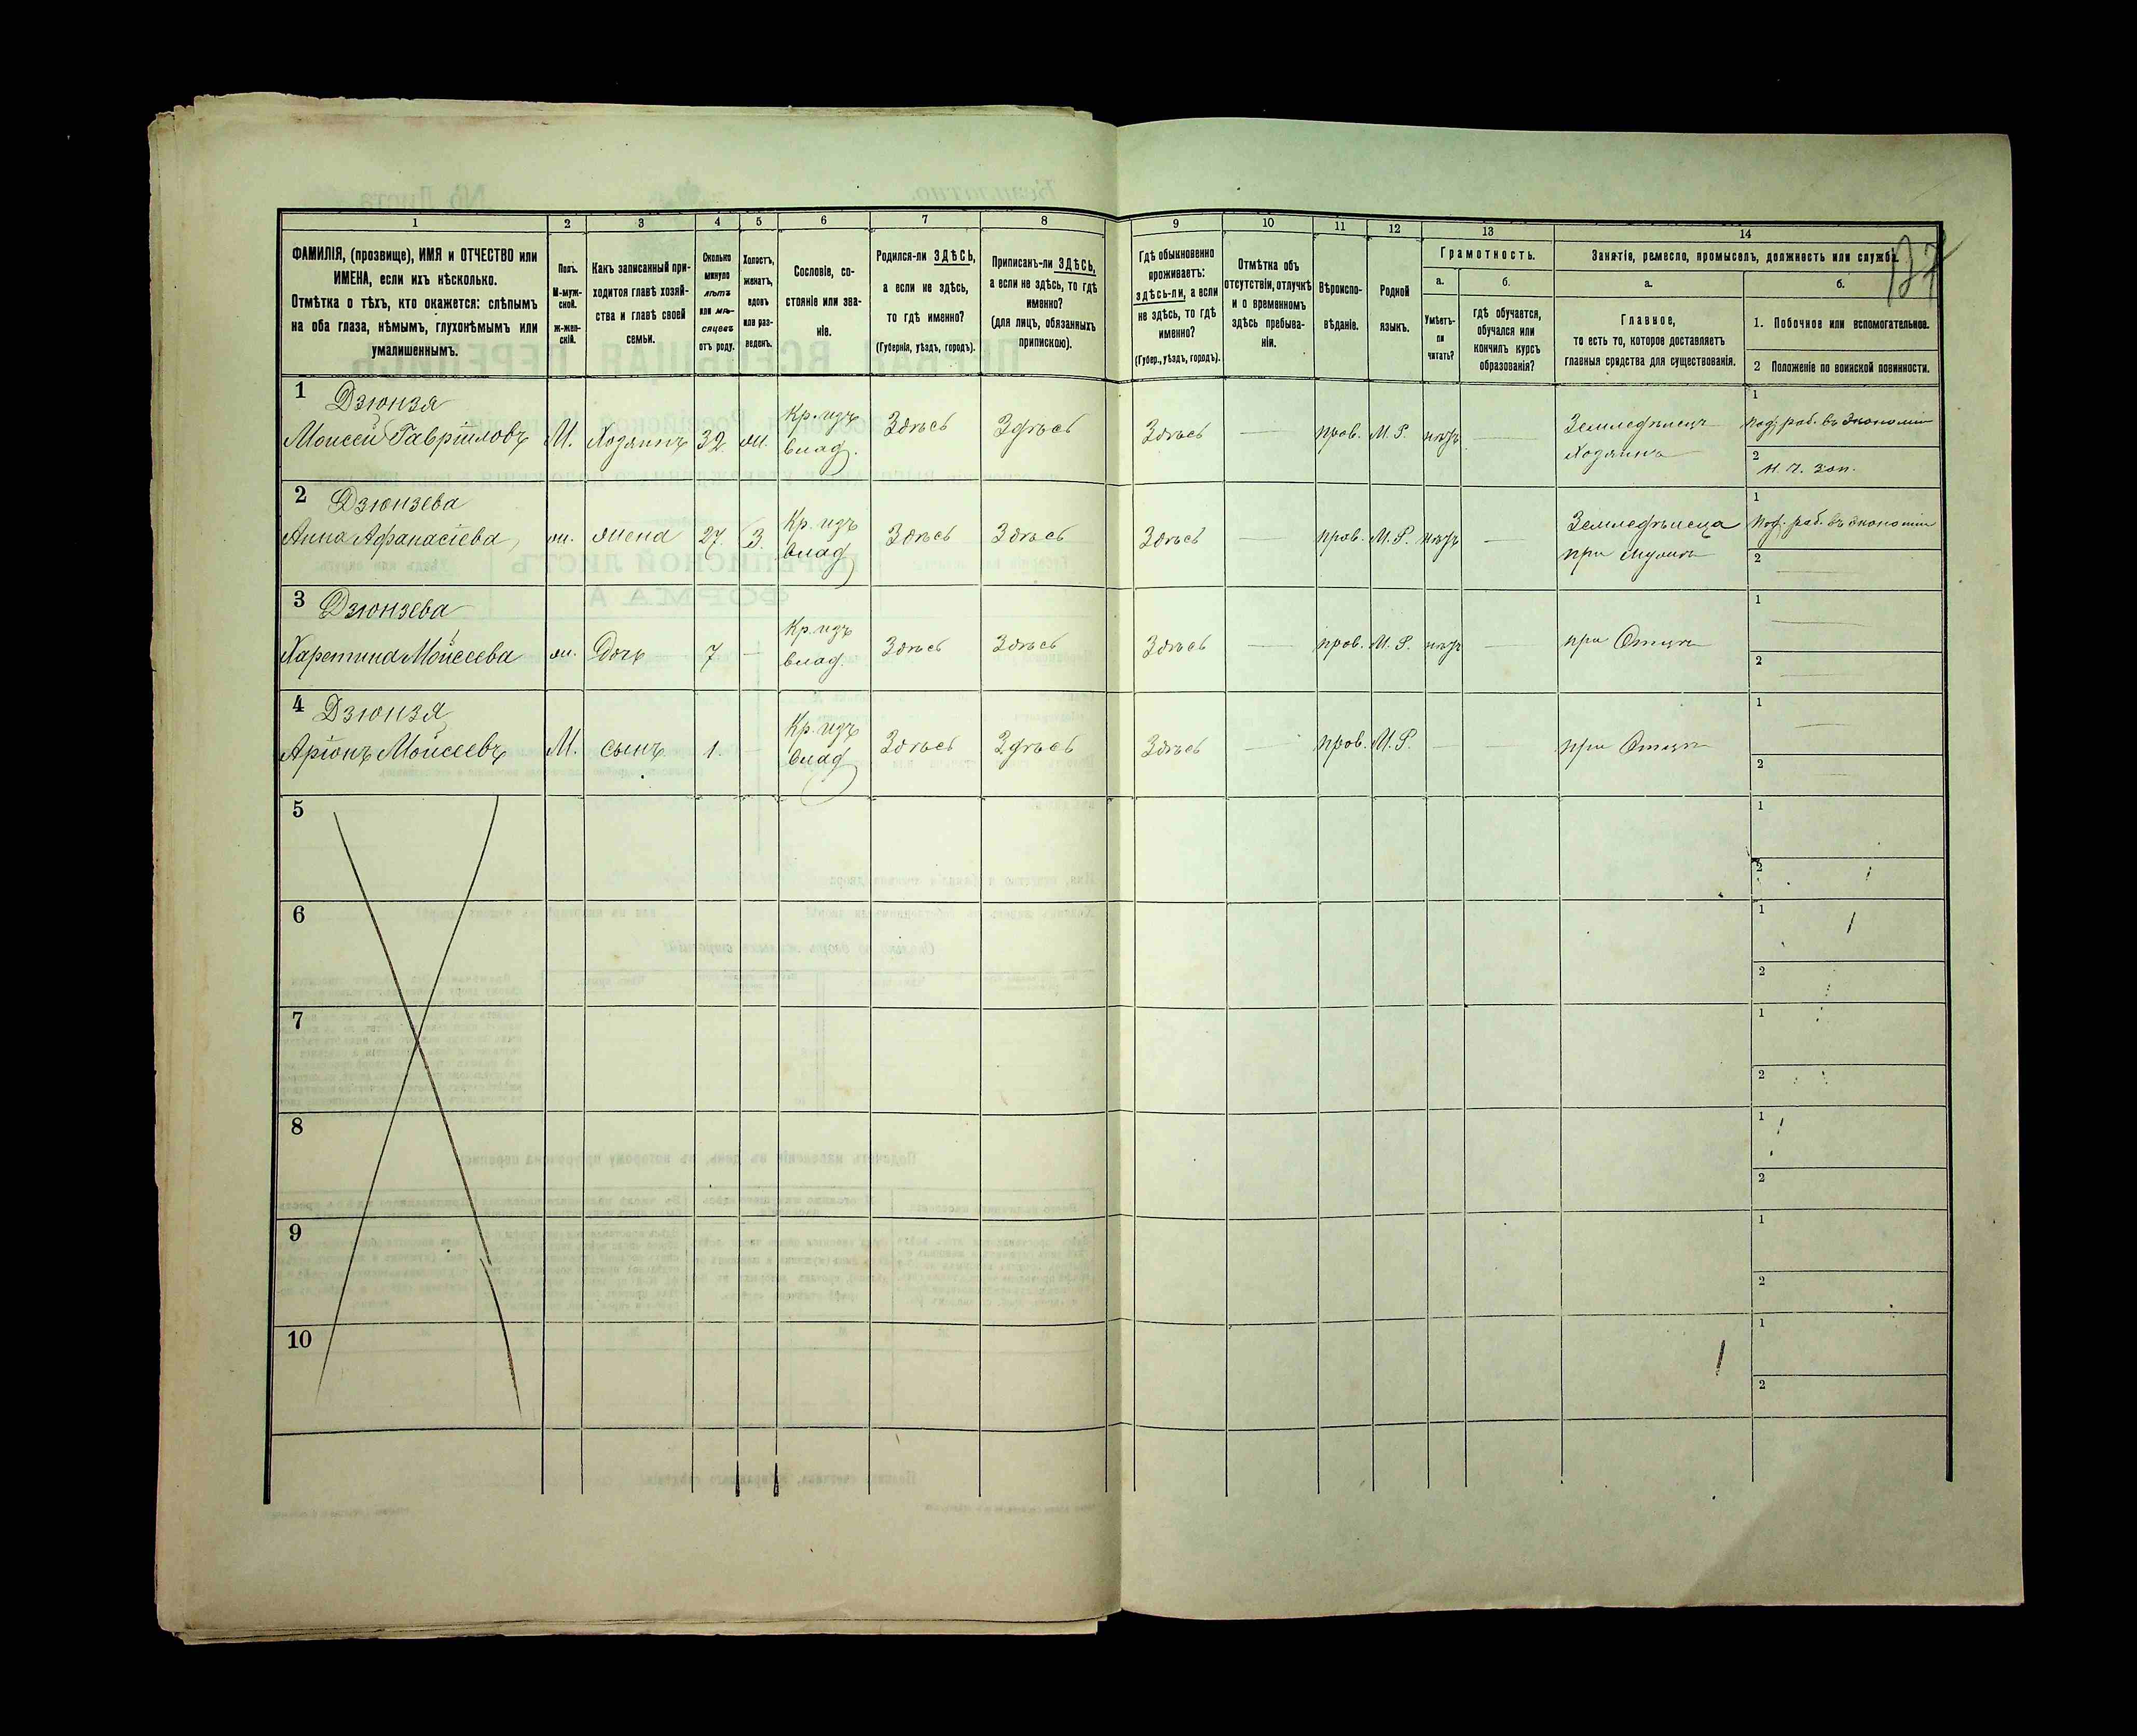 1
2
3
4
5
6
7
8
9
10
11
12
13
14
ФАМИЛІЯ, (прозвище), ИМЯ и ОТЧЕСТВО или
ИМЕНА, если ихъ нѣсколько.
Отмѣтка о тѣхъ, кто окажется: слѣпымъ
на оба глаза, нѣмымъ, глухонѣмымъ или
умалишеннымъ.
Полъ.
М-муж-
ской.
ж-жен-
скій.
Какъ записанный при-
ходится главѣ хозяй-
ства и главѣ своей
семьи.
Сколько
минуло
лѣтъ
или мѣ-
сяцевъ
отъ роду.
Холостъ,
женатъ,
вдовъ
или раз-
веденъ.
Сословіе, со-
стояніе или зва-
ніе.
Родился-ли ЗДѢСЬ,
а если не здѣсь,
то гдѣ именно?
(Губернія, уѣздъ, городъ).
Приписанъ-ли ЗДѢСЬ,
а если не здѣсь, то гдѣ
именно?
(для лицъ, обязанныхъ
припискою).
Гдѣ обыкновенно
проживаетъ:
здѣсь-ли, а если
не здѣсь, то гдѣ
именно?
(Губер., уѣздъ, городъ).
Отмѣтка объ
отсутствіи, отлучкѣ
и о временномъ
здѣсь пребыва-
ніи.
Вѣроиспо-
вѣданіе.
Родной
языкъ.
Грамотность.
а.
Умѣетъ-
ли
читать?
б.
гдѣ обучается,
обучался или
кончилъ курсъ
образованія?
Занятіе, ремесло, промыселъ, должность или служба.
а.
Главное,
то есть то, которое доставляетъ
главныя средства для существованія.
б.
1. Побочное или вспомогательное.
2 Положеніе по воинской повинности.
1 Дзюнзя
Моисей Гавріиловъ М. Хозяинъ 32 ж. Кр. изъ влад. Здѣсь Здѣсь Здѣсь — прав. М. Р. нѣтъ — Земледѣлецъ Хозяинъ
1 под. раб. въ Экономіи
2 н. ч. зап.
2 Дзюнзева
Анна Афанасіева ж. жена 27 З. Кр. изъ влад Здѣсь Здѣсь Здѣсь — прав. М. Р. нѣтъ — Земледѣлеца при мужѣ
1 под. раб. въ Экономіи
2 —
3 Дзюнзева
Харетина Моисеева ж. Дочь 7 — Кр. изъ влад. Здѣсь Здѣсь Здѣсь — прав. М. Р. нѣтъ — при Отцѣ
1 —
2 —
4 Дзюнзя
Аріонъ Моисеевъ М. сынъ 1. — Кр. изъ влад Здѣсь Здѣсь Здѣсь — прав. М. Р. — — при Отцѣ
1 —
2 —
5
1
2
6
1
2
7
1
2
8
1
2
9
1
2
10
1
2